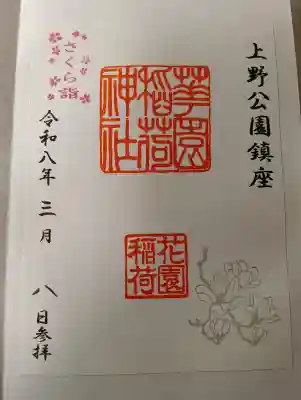 上野公園鎮座
華園稲荷神社
花園稲荷
さくら詣
令和八年三月八日参拝